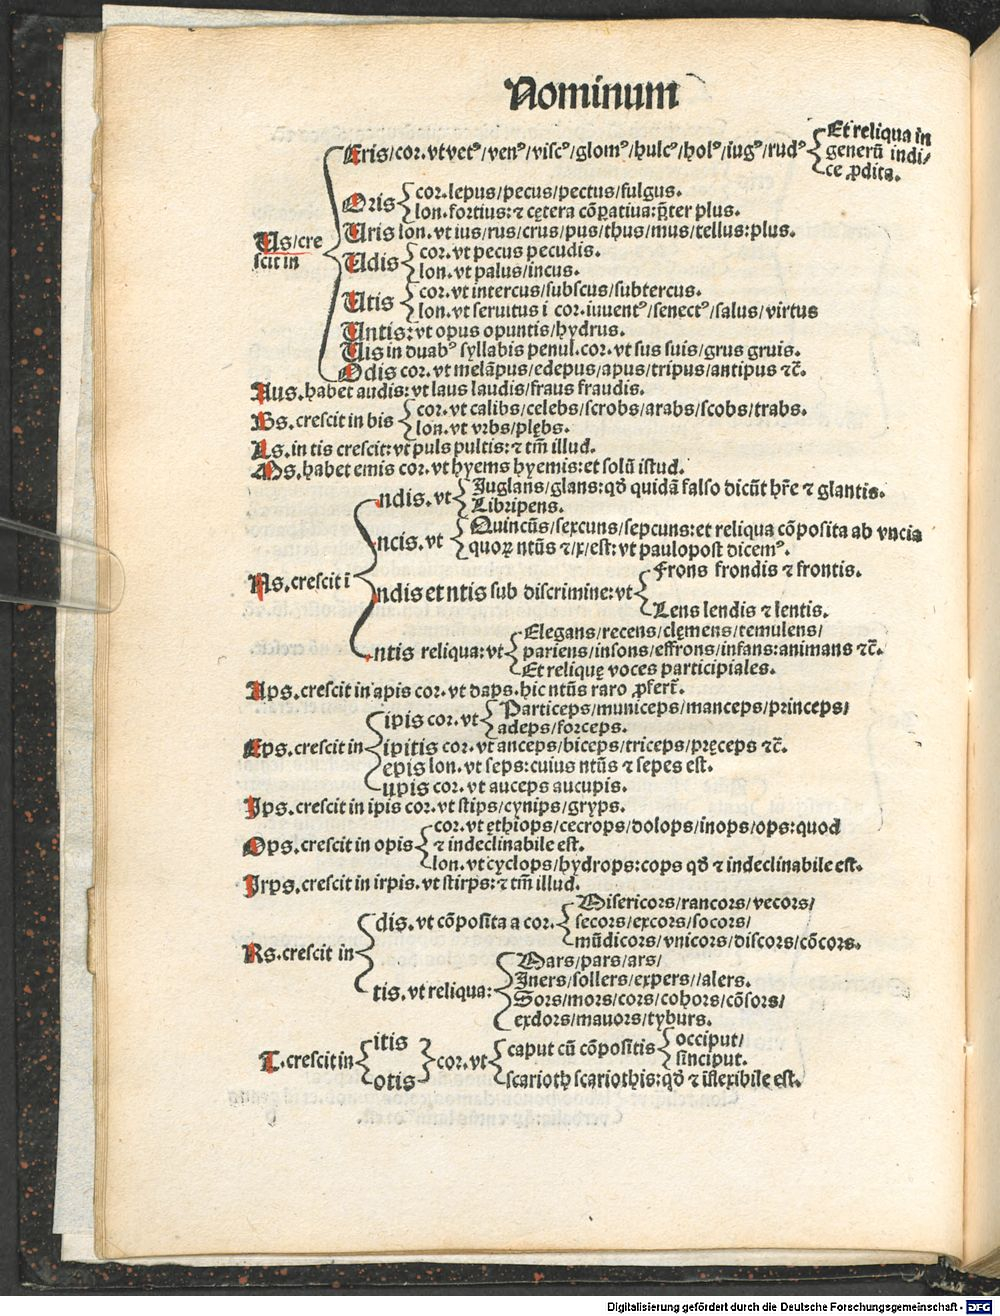 Nominum
Eris/cor.vt vetꝰ/venꝰ/viscꝰ/glomꝰ/hulcꝰ/holꝰ/iugꝰ/rudꝰ
Et reliqua in
generū indi/
ce ꝓdita.
Us/cre
scit in
Oris
cor.lepus/pecus/pectus/fulgus.
lon.fortius:⁊ cętera cōꝑatiua:p̄ter plus.
Uris lon.vt ius/rus/crus/pus/thus/mus/tellus:plus.
Udis
cor.vt pecus pecudis.
lon.vt palus/incus.
Utis
cor.vt intercus/subscus/subtercus.
lon.vt seruitus i cor.iuuentꝰ/senectꝰ/salus/virtus
Untis:vt opus opuntis/hydrus.
Uis in duabꝰ syllabis penul.cor.vt sus suis/grus gruis.
Odis cor.vt melāpus/edepus/apus/tripus/antipus ⁊c̄.
Aus.habet audis:vt laus laudis/fraus fraudis.
Bs.crescit in bis
cor.vt calibs/celebs/scrobs/arabs/scobs/trabs.
lon.vt vrbs/plębs.
Ls.in tis crescit:vt puls pultis:⁊ tm̄ illud.
Ms.habet emis cor.vt hyems hyemis:et solū istud.
Ns.crescit ī
ndis.vt
Juglans/glans:qđ quidā falso dicūt hr̄e ⁊ glantis.
Libripens.
ncis.vt
Quincūs/sexcuns/sepcuns:et reliqua cōposita ab vncia
quoꝝ ntūs ⁊/x/est:vt paulopost dicemꝰ.
ndis et ntis sub discrimine:vt
Frons frondis ⁊ frontis.
Lens lendis ⁊ lentis.
ntis reliqua:vt
Elegans/recens/clęmens/temulens/
pariens/insons/effrons/infans:animans ⁊c̄.
Et reliquę voces participiales.
Aps.crescit in apis cor.vt daps.hic ntūs raro ꝓfert̄.
Eps.crescit in
ipis cor.vt
Particeps/municeps/manceps/princeps/
adeps/forceps.
ipitis cor.vt anceps/biceps/triceps/pręceps ⁊c̄.
epis lon.vt seps:cuius ntūs ⁊ sepes est.
upis cor.vt auceps aucupis.
Jps.crescit in ipis cor.vt stips/cynips/gryps.
Ops.crescit in opis
cor.vt ęthiops/cecrops/dolops/inops/ops:quod
⁊ indeclinabile est.
lon.vt cyclops/hydrops:cops qđ ⁊ indeclinabile est.
Jrps.crescit in irpis.vt stirps:⁊ tm̄ illud.
Rs.crescit in
dis.vt cōposita a cor.
Misericors/rancors/vecors/
secors/excors/socors/
mūdicors/vnicors/discors/cōcors.
tis.vt reliqua:
Mars/pars/ars/
Jners/sollers/expers//alers.
Sors/mors/cors/cohors/cōsors/
exdors/mauors/tyburs.
T.crescit in
itis
otis
cor.vt
caput cū cōpositis
occiput/
sinciput.
scarioth scariothis:qđ ⁊ īflexibile est.
Digitalisierung gefördert durch die Deutsche Forschungsgemeinschaft - DFG